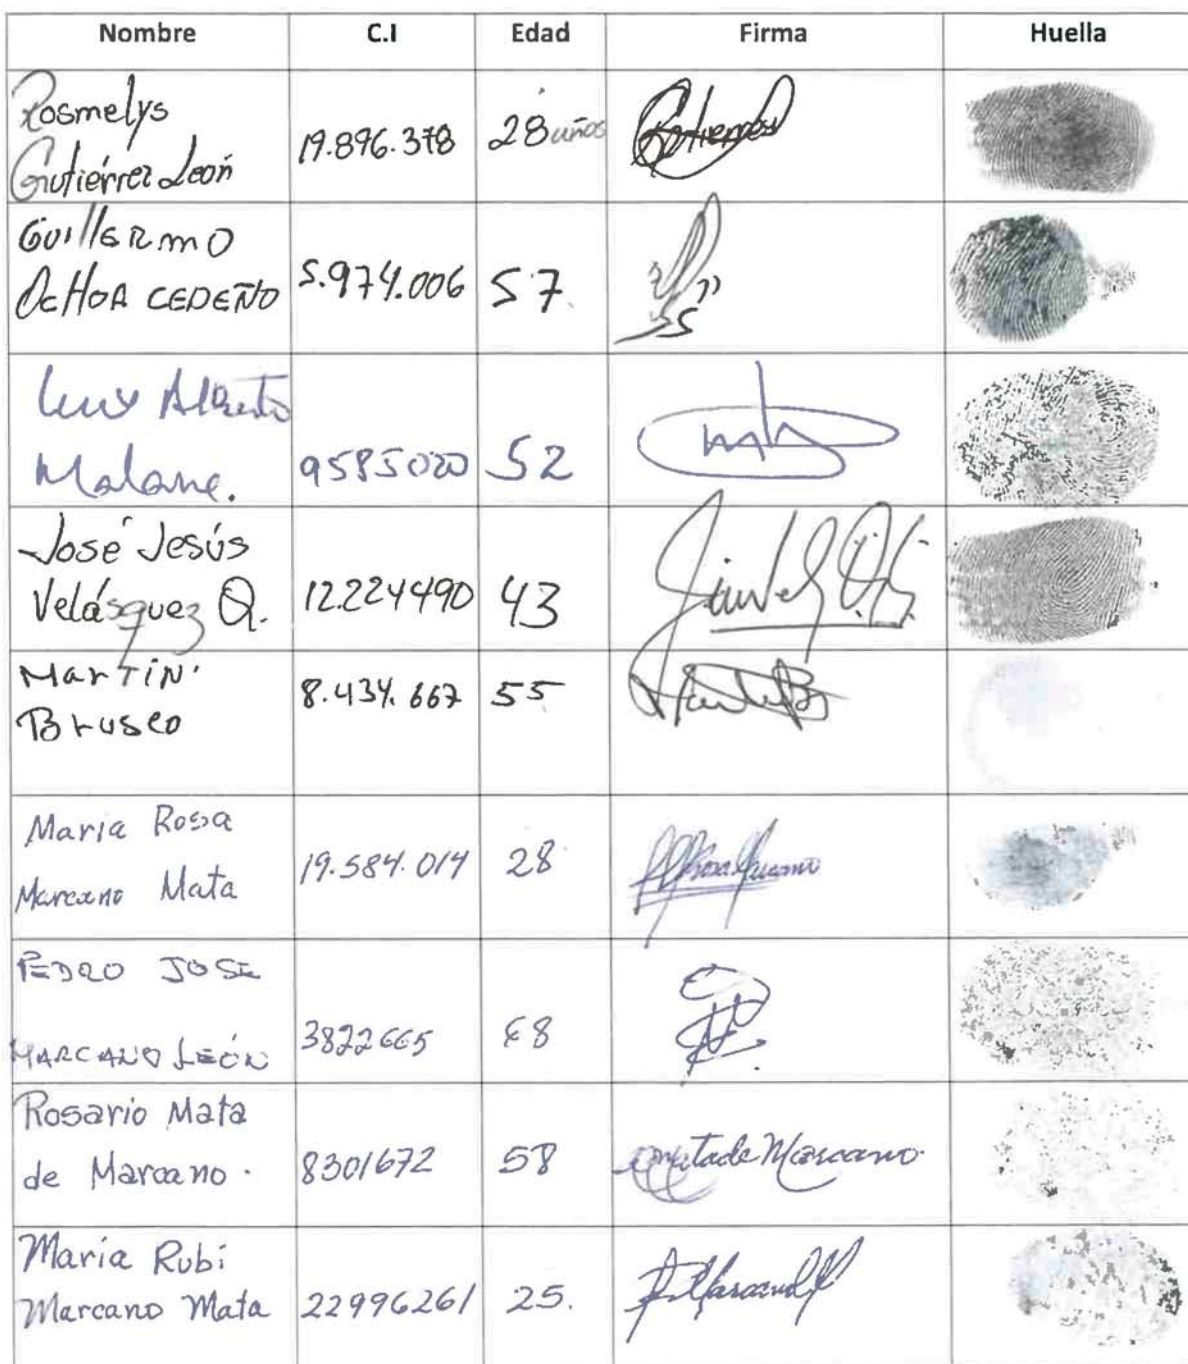 Nombre C.I Edad Firma Huella
Rosmelys
Gutiérrez León 19.896.378 28 años
Guillermo
Ochoa CEDEÑO 5.974.006 57
Luis Alberto
9585020 52
José Jesús
Velásquez Q. 12.224490 43
Martin
Brusco 8.434.667 55
Maria Rosa
Marcano Mata 19.584.014 28
PEDRO JOSE
MARCANO LEÓN 3822665 68
Rosario Mata
de Marcano. 8301672 58 matade Marcano.
Maria Rubi
Marcano Mata 22996261 25.